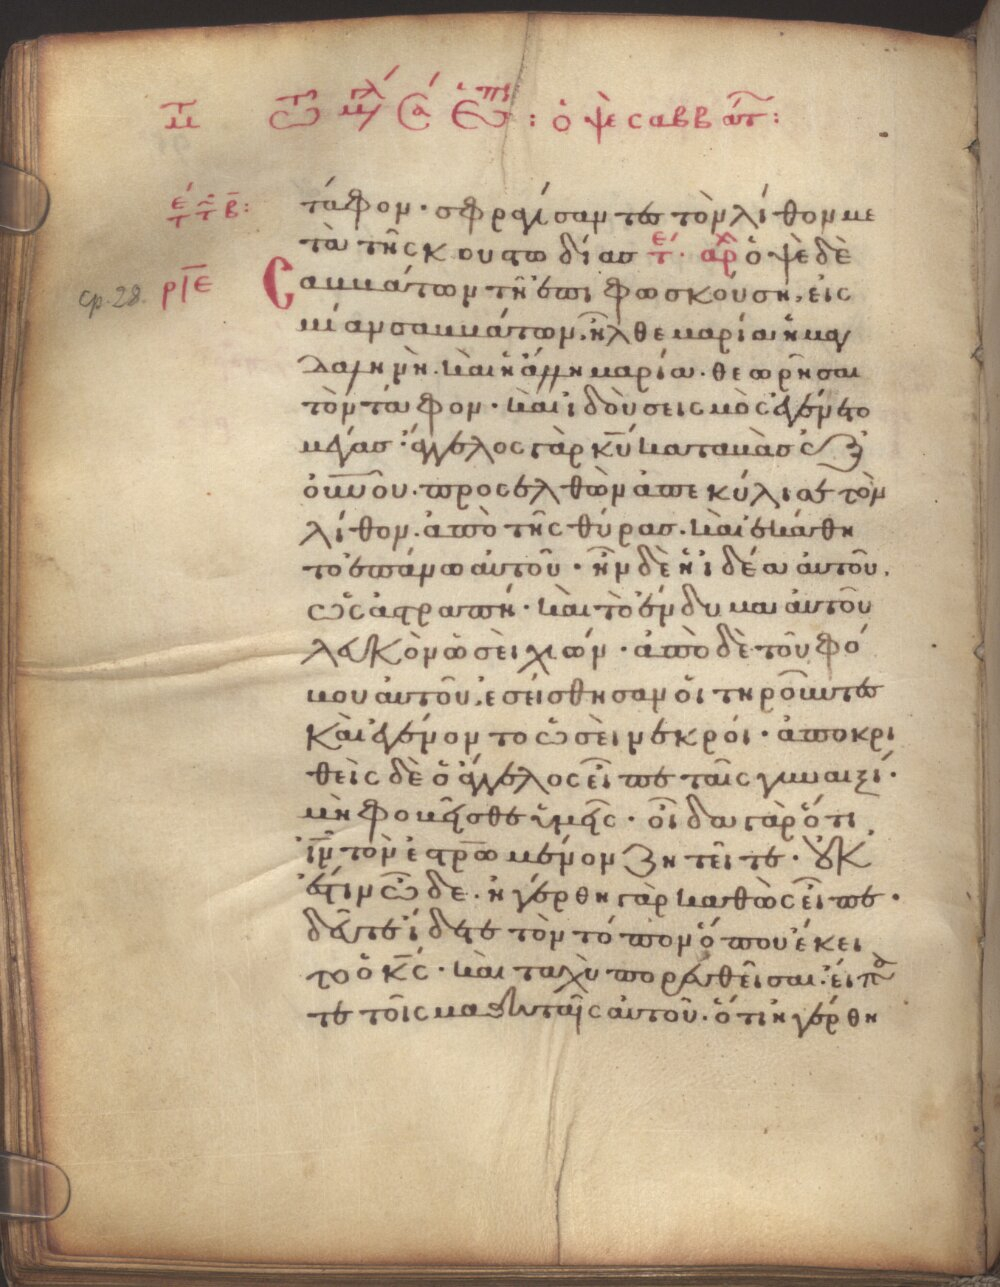 τάφον· σφραγίσαντες τὸν λίθον με
τὰ τῆς κουστωδίας τέ· ἀρχ ὀψὲ δὲ
ριε Σαββάτων τῆ ἐπιφωσκούση, εἰς
μίαν σαββάτων, ἦλθε μαρία ἡ μαγ
δαληνὴ. καὶ ἡ ἄλλη μαρία· θεωρῆσαι
τὸν τάφον· καὶ ἰδοὺ σεισμὸς ἐγένετο
μέγας· ἄγγελος γὰρ κ̅υ̅ καταβὰς ἐξ
ὀυ̅νου· προσελθὼν ἀπεκύλισε τὸν
λίθον. ἀπὸ τῆς θύρας. καὶ ἐκάθη
το ἐπάνω αὐτοῦ· ἦν δὲ ἡ ἰδέα αὐτοῦ,
ὡς ἀστραπή· καὶ τὸ ἔνδυμα αὐτοῦ
λευκὸν ὡσεὶ χιών· ἀπὸ δὲ τοῦ φό
βου αὐτοῦ, ἐσείσθησαν οἱ τηροῦντες
καὶ ἐγένοντο ὡσεὶ νεκροί· ἀποκρι
θεὶς δὲ ὁ ἄγγελος εἶπε ταῖς γυναιξί·
μὴ φοβεῖσθε ὑμεῖς· οἶδα γὰρ ὅτι
ι̅ν̅ τὸν ἐστρ̅ωμένον ζητεῖτε· οὐκ
ἔστιν ὧδε· ἠγέρθη γὰρ καθὼς εἶπε·
δεῦτε ἴδετε τὸν τόπον ὅπου ἔκει
το ὁ κ̅ς̅· καὶ ταχὺ πορευθεῖσαι· εἴπα
τε τοῖς μαθηταῖς αὐτοῦ· ὅτι ἠγέρθη